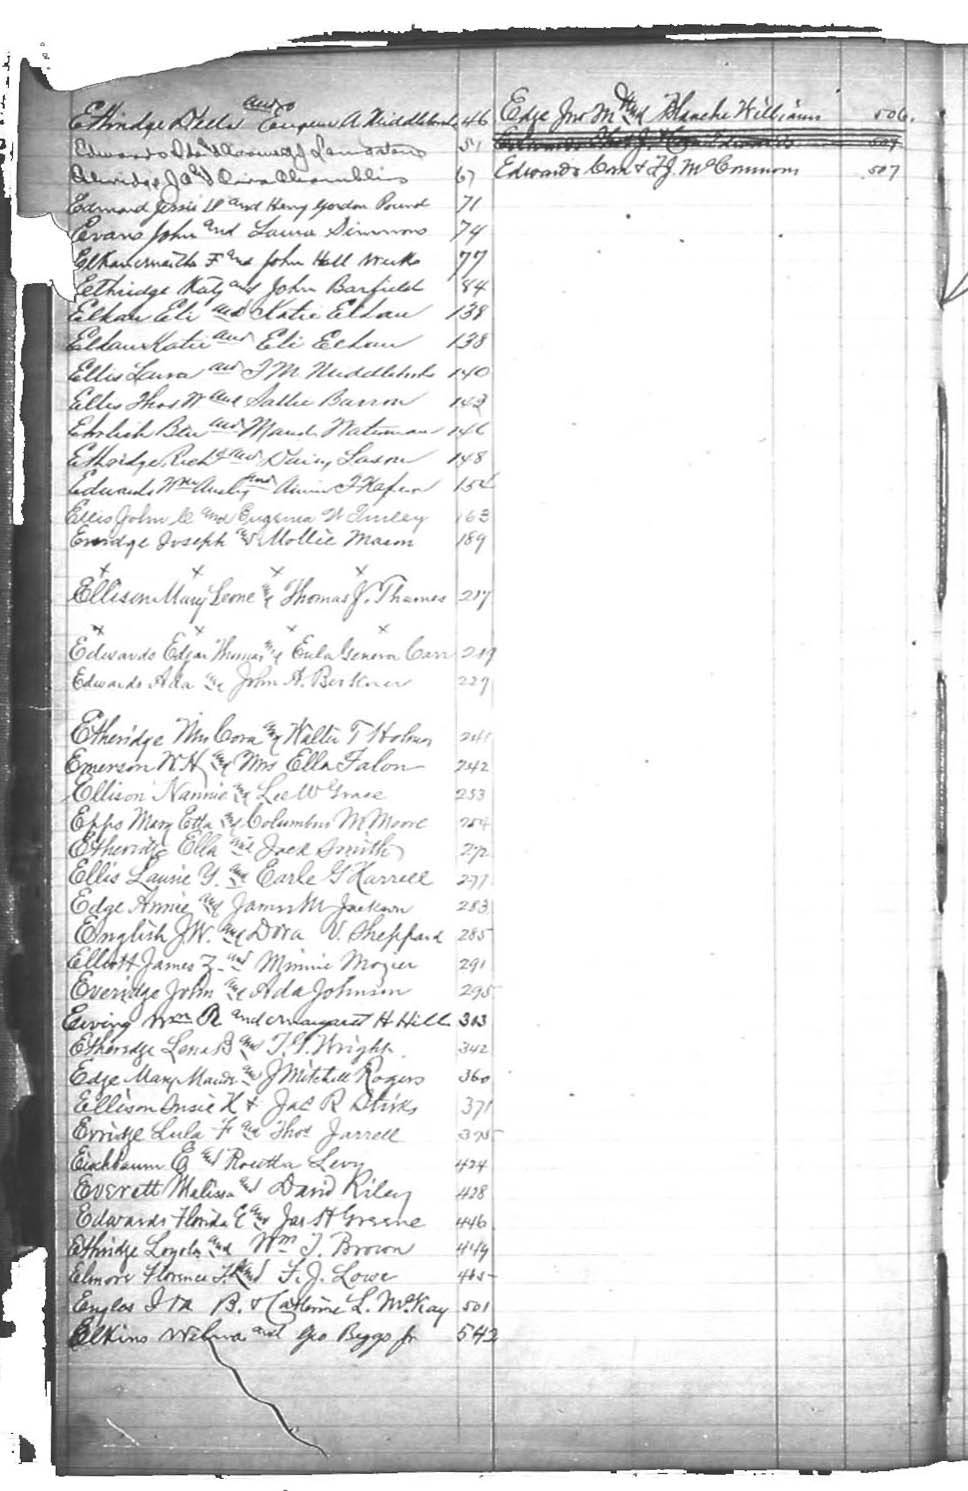 Ethridge Stella and Eugene A Middlebrooks 46
Edwards 51
67
Edmond Jessie W and Henry Gordon Pound 71
Evans John and Laura Simmons 74
Elkan Martha F and John Hall Weeks 77
Ethridge Katy and John Barfield 84
Elkan Eli and Katie Elkan 138
Elkan Katie and Eli Elkan 138
Ellis Laura and T M Middlebrooks 140
Ellis Thos W and Sallie Barron 143
Ehrlich Ben and Maud Waterman
Ethridge Richd and Daisy Eason 148
Edwards Wm and 154
Ellis John C and Eugenia W Turley 163
Everidge Joseph & Mollie Mason 189
x x x x
Ellison Mary Leone & Thomas J. Thames 217
x x x x
Edwards Edgar Thomas & Eula Genevra Carr 219
Edwards Ada and John A. Berkner 229
Etheridge Mrs Cora and Walter T Holmes 241
Emerson W.H. and Mrs Ella Falon 242
Ellison Nannie and Lee W Grace 253
Epps Mary Etta and Columbus M Moore 254
Etheridge Ella and Jack Smith 272
Ellis Laurie Y. and Earle G Harrell 277
Edge Annie and James M Jackson 283
English J.W. and Dora V. Sheppard 285
Elliott James Z. and Minnie Mozier 291
Everidge John and Ada Johnson 295
Ewing Wm R and Margaret H Hill 303
Etheredge Lena B and T. T. Wright 342
Edge Mary Maude and J Mitchell Rogers 360
Ellison Susie K & Jas R Stirks 371
Erridge Lula F and Thos Jarrell 375
Eichbaum E and Rosetta Levy 424
Everett Malissa and David Riley 428
Edwards Florida E and Jas H Greene 446
Ethridge Loyola and Wm T. Brown 449
Elmore Florence T. and F. J. Lowe 465
Engles Ira B. & Catherine L. McKay 501
Elkins Wilma and Geo Beggs Jr 542
Edge Jno M and Blanche Williams 506.
Edwards 507
Edwards Cora & T.J. McCommons 507